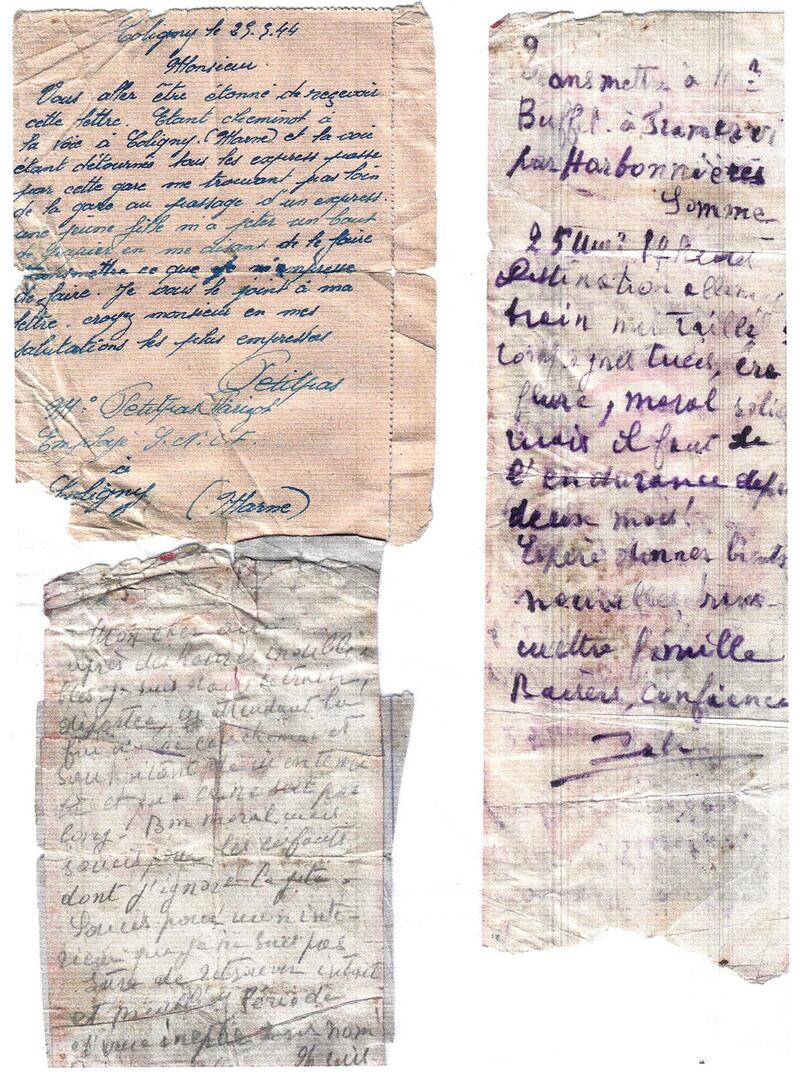 Coligny le 29.5.44
Monsieur.
Vous aller être étonné de reçevoir
cette lettre. Etant cheminot à
la voie à Coligny. (Marne) et la voie
étant détourné tous les express passe
par cette gare me trouvant pas loin
de la gare au passage d'un express.
une jeune fille m'a jeter un bout
de papier en me disant de le faire
transmettre ce que je m'empresse
de faire. Je vous le joint à ma
lettre. croyez monsieur en mes
salutations les plus empressés
Petitpas
Mr Petitpas
Employe S.N.C.F.
à
Coligny (Marne)
Mon cher
après des heures inoubli
bles je suis dans le train,
déportée, en attendant la
fin de ce cauchemar et
souhaitant
et que ce ne soit pas
long. Bon moral, mais
soucis pour les enfants,
dont j'ignore la
Soucis pour mon inté-
rieur que je ne suis pas
sûre de retrouver intact
et
d'une sans nom
transmettre à Mr
Buffet. à Framervi
par Harbonnières
Somme
25
Destination allem
train mitraillé
compagnes tuées,
moral soli
mais il faut de
l'endurance depu
deux mois!
Espère donner bient
nouvelles, trans-
mettre famille
Baisers, Confiance